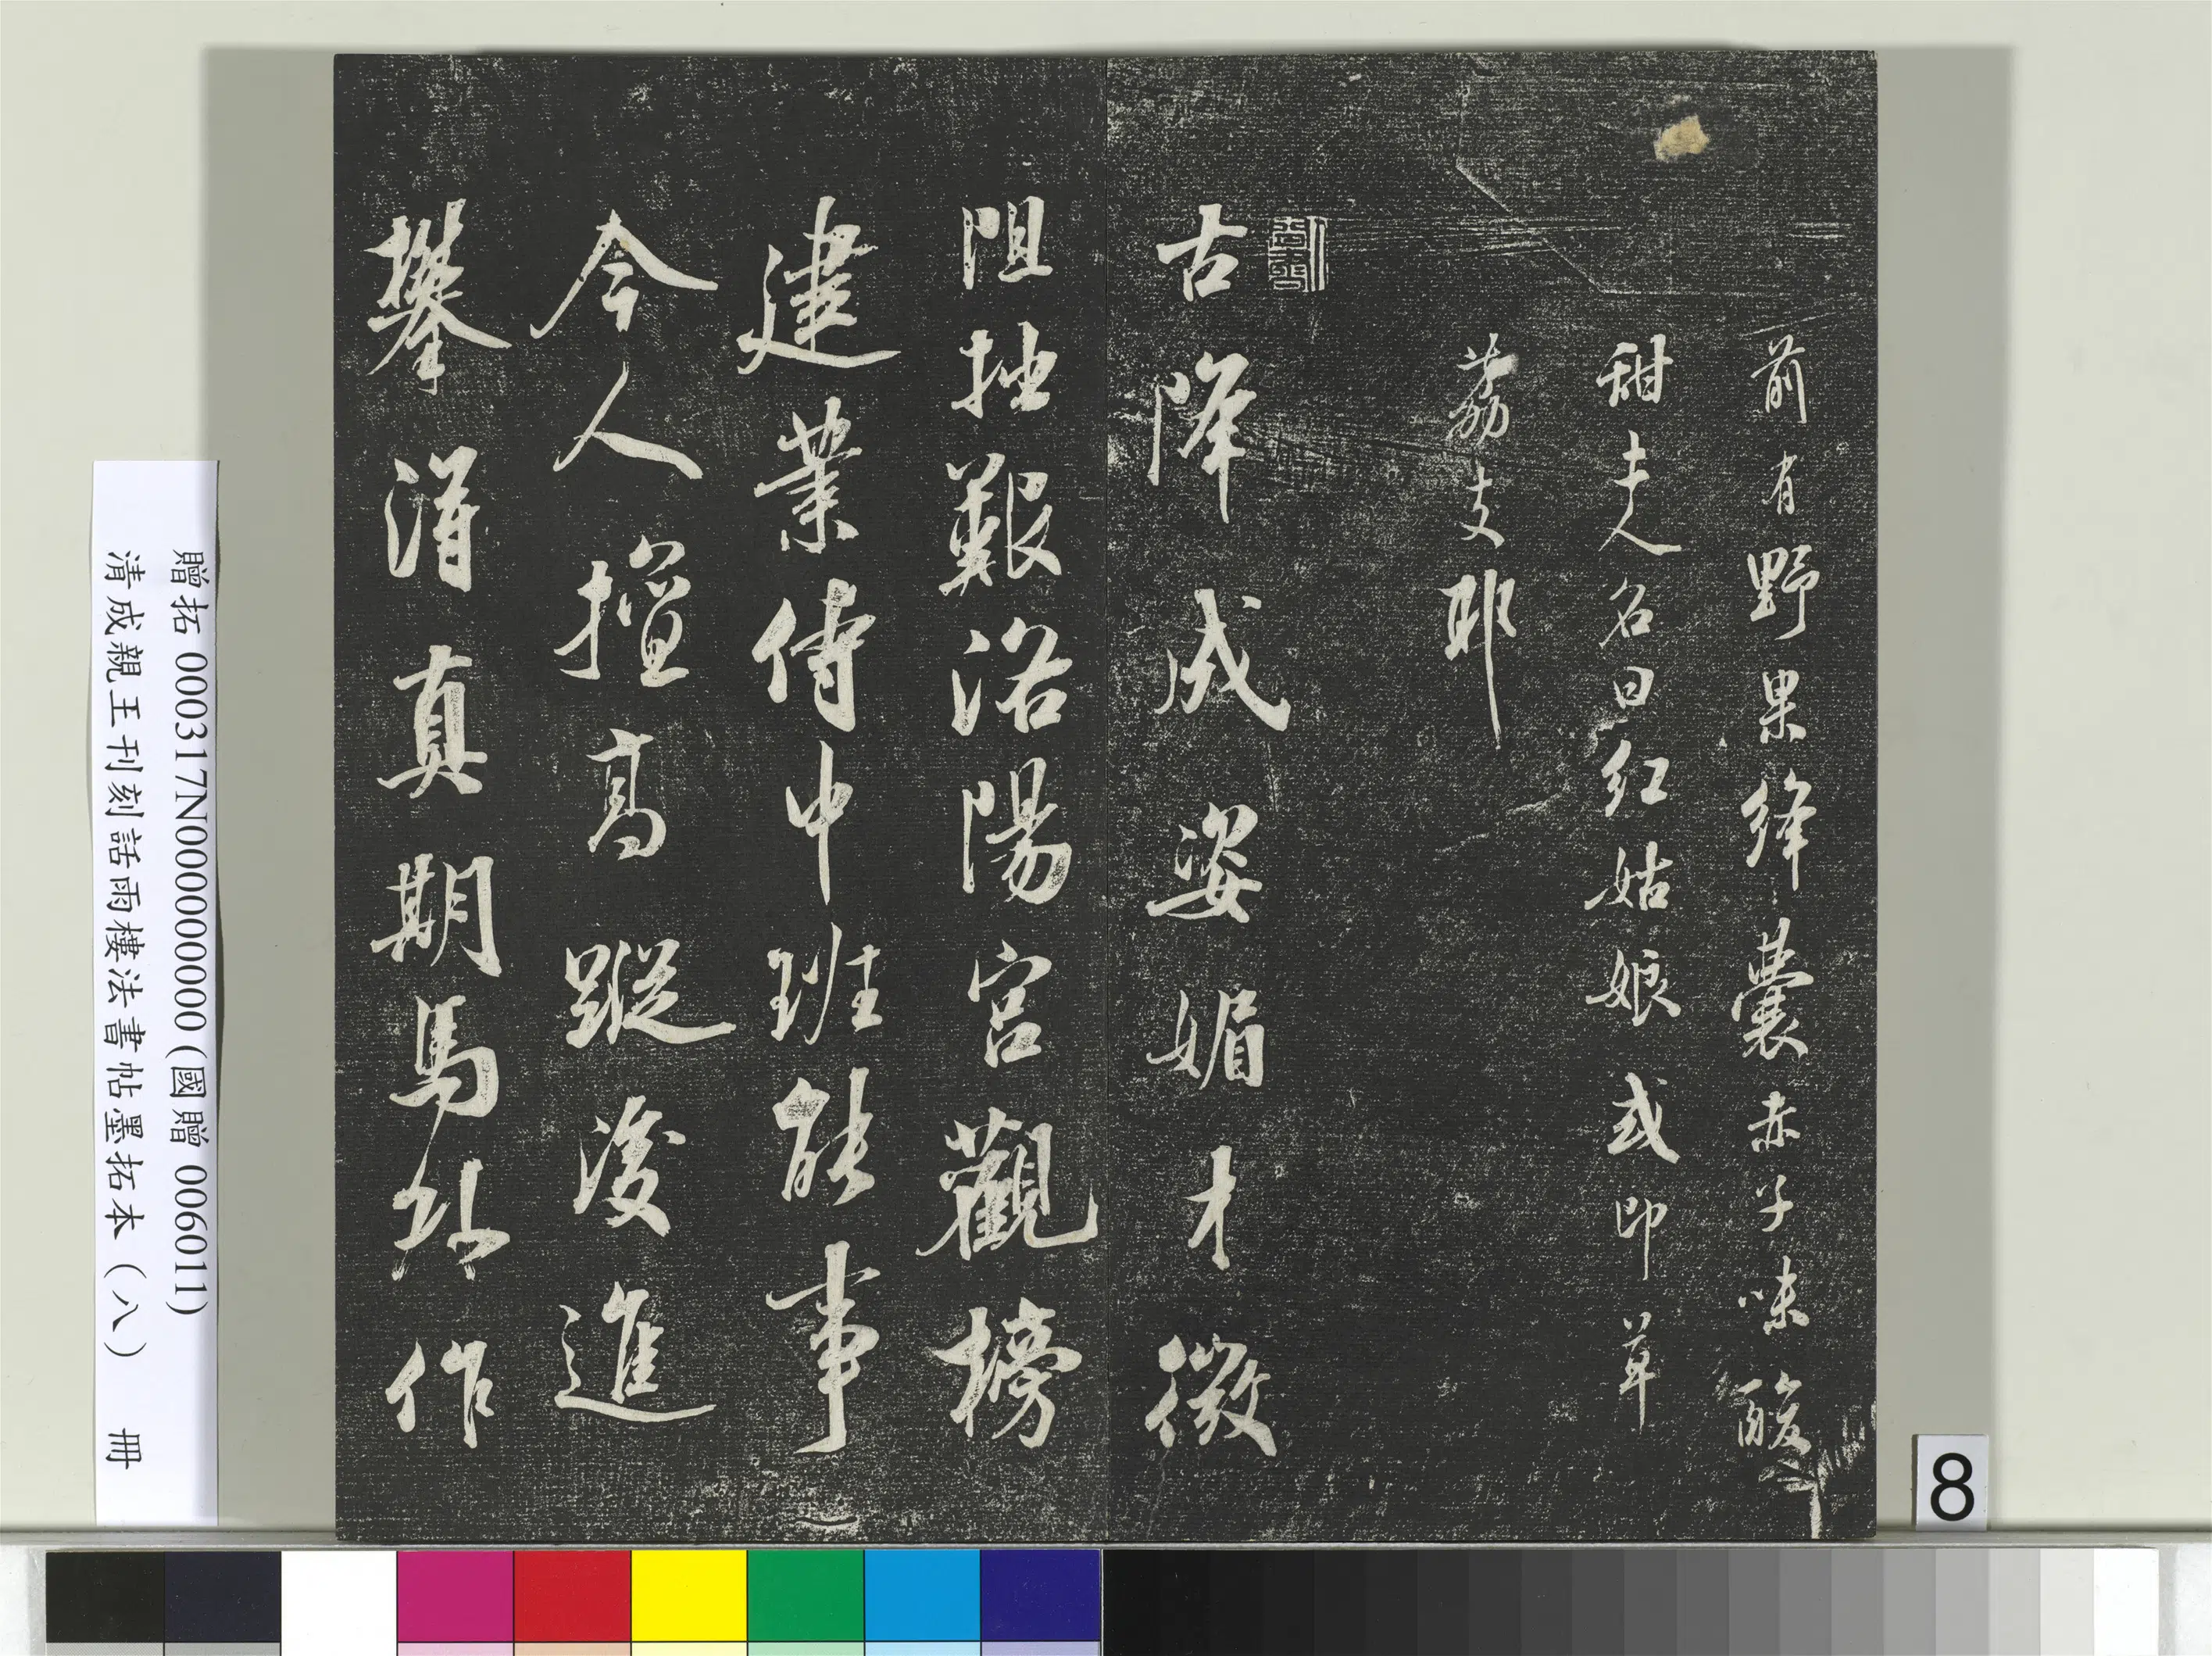 前有野果絳囊赤子味酸
甜夫人名曰紅姑娘或即草
荔支耶
古降威姿媚才微
阻拙艱洛陽宮觀榜
建業侍中班能事
今人擅高蹤後進
攀渭真期馬作
贈拓 000317N000000000 (國贈 006011)
清成親王刊刻話雨樓法書帖墨拓本（八） 冊
8